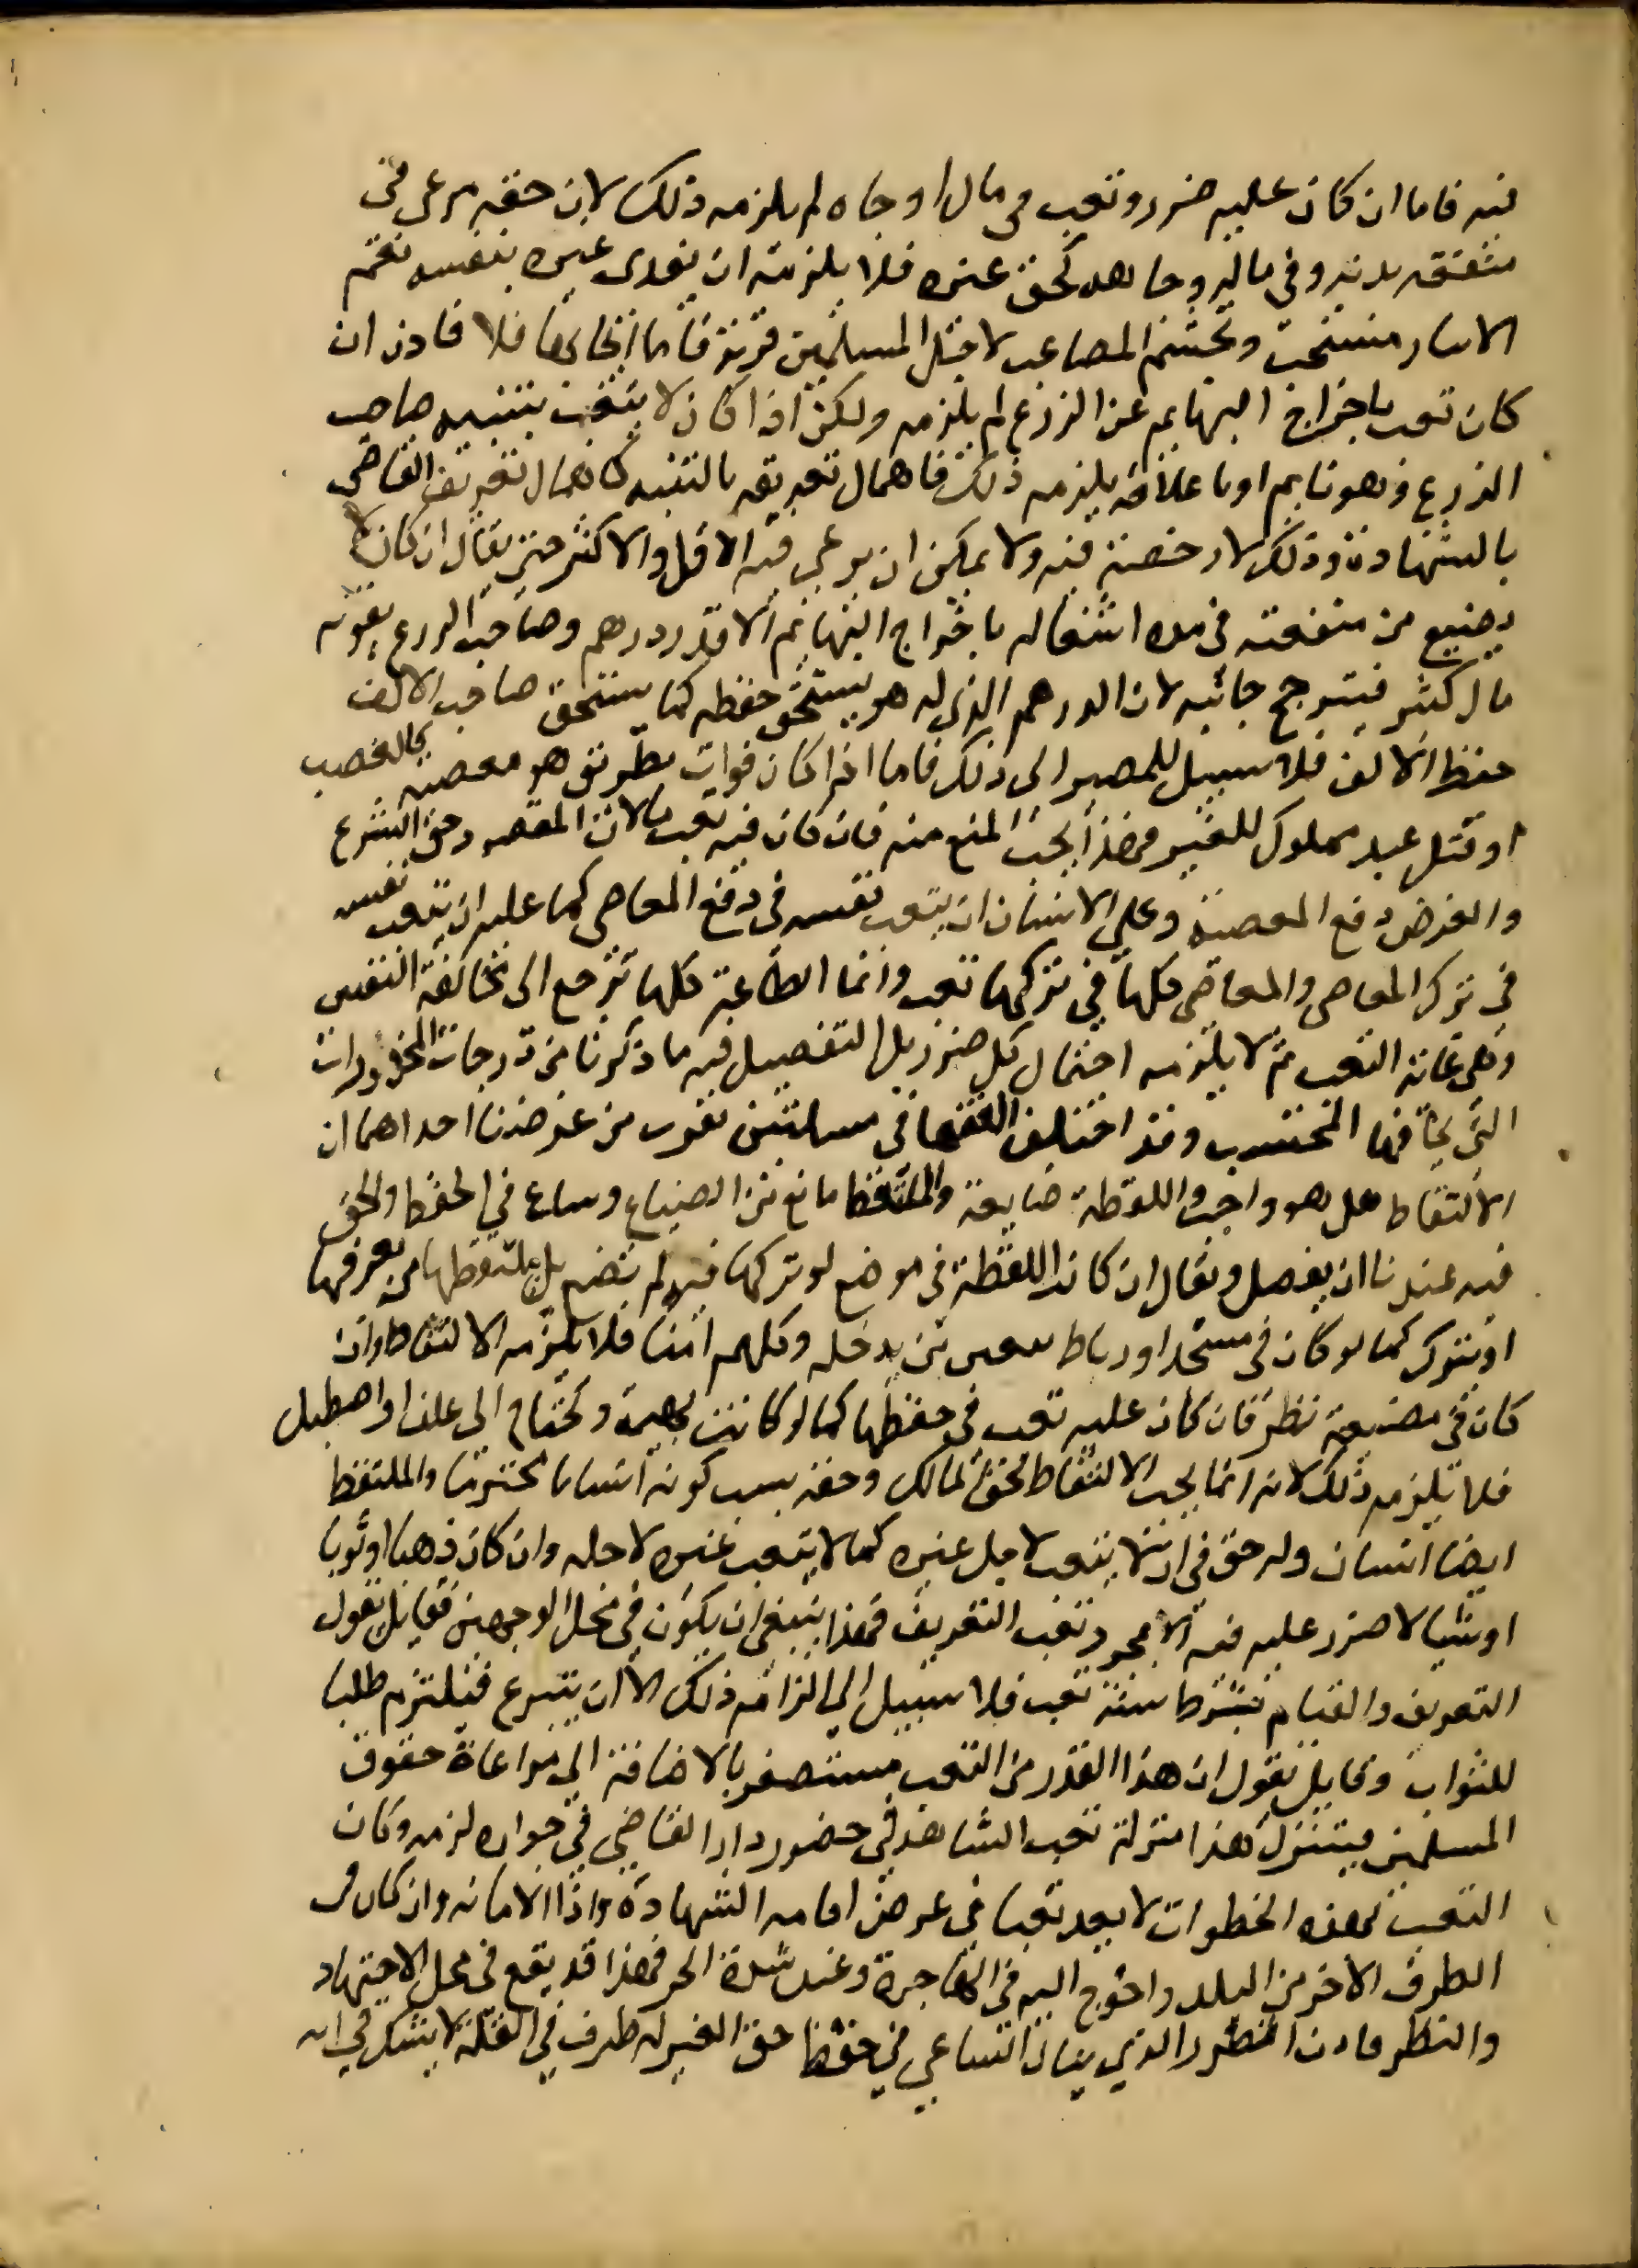 فيه فاما ان كان عليه ضرر وتعب في مال او جاه لم يلزمه ذلك لان حقه مرعى في
منفعة بدنه وفي ماله وجاهه كحق غيره فلا يلزمه ان يفدى غيره بنفسه نعم
الايثار مستحب وتجشم المصاعب لاجل المسلمين قربة فاما ايجابها فلا فاذن ان
كان تعب باخراج البهايم عن الزرع لم يلزمه ولكن اذا كان لا يتعب بتنبيه صاحب
الزرع من نومه او باعلامه يلزمه ذلك فاهمال تعريفه بالتنبيه كاهمال تعريف القاضي
بالشهادة وذلك لا رخصة فيه ولا يمكن ان يرعى فيه الاقل والاكثر حتى يقال ان كان لا
يضيع من منفعته في مدة اشتغاله باخراج البهايم الا قدر درهم وصاحب الزرع يفوته
مال كثير فيترجح جانبه لان الدرهم الذي له هو يستحق حفظه كما يستحق صاحب الالف
حفظ الالف فلا سبيل للمصير الى ذلك فاما اذا كان فوات بطريق هو معصيه كالغصب
او قتل عبد مملوك للغير فهذا يجب المنع منه وان كان فيه تعب ما لان المقصود حق الشرع
والغرض دفع المعصية وعلى الانسان ان يتعب نفسه في دفع المعاصي كما عليه ان يتعب نفسه
في ترك المعاصي والمعاصي كلها في تركها تعب وانما الطاعة كلها ترجع الى مخالفة النفس
وهي غاية التعب ثم لا يلزمه احتمال كل ضرر بل التفصيل فيه ما ذكرنا من درجات المحذورات
التي يخافها المحتسب وقد اختلف الفقها في مسئلتين تقرب من غرضنا احداهما ان
الالتقاط هل هو واجب واللقطة ضايعة والملتقط مانع من الضياع وساع في الحفظ والحق
فيه عندنا ان يفصل ويقال ان كانت اللقطة في موضع لو تركها فيه لم تضع بل يلتقطها من يعرفها
او تترك كما لو كان في مسجد او رباط من يدخله وكلهم امنا فلا يلزمه الالتقاط وان
كان في مضيعة نظر فان كان عليه تعب في حفظها كما لو كانت بهيمة وتحتاج الى علف او اصطبل
فلا يلزمه ذلك لانه انما يجب الالتقاط لحق المالك وحقه بسبب كونه انسانا محترما والملتقط
ايضا انسان وله حق في ان لا يتعب لاجل غيره كما لا يتعب غيره لاجله وان كان ذهبا او ثوبا
او شيا لا ضرر عليه فيه الا مجرد تعب التعريف فهذا ينبغي ان يكون في محل الوجهين فقايل يقول
التعريف والقيام بشرط سنة تعب فلا سبيل الى الزامه ذلك الا ان يتبرع فيلتزم طلبا
للثواب وقايل يقول ان هذا القدر من التعب مستصغر بالاضافة الى مراعاة حقوق
المسلمين فيتنزل هذا منزلة تعب الشاهد في حضور دار القاضي في جواره لزمه وكان
التعب بهذه الخطوات لا يعد تعبا في غرض اقامه الشهادة واداا الامانه وان كان في
الطرف الاخر من البلد واحوج اليه في الهاجرة وعند شدة الحر فهذا قد يقع في محل الاجتهاد
والنظر فاذن الضرر الذي ينال الساعي في حفظ حق الغير له طرف في القلة لا يشك في انه